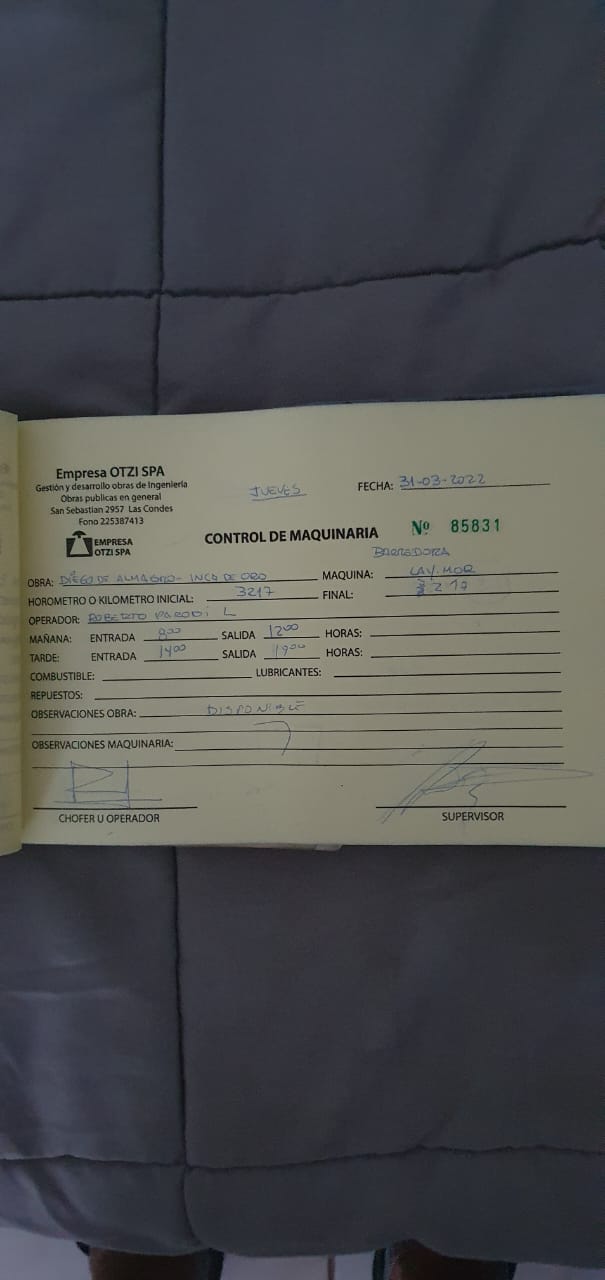 Empresa OTZI SPA
Gestión y desarrollo obras de Ingeniería
Obras publicas en general
San Sebastian 2957 Las Condes
Fono 225387413
EMPRESA
OTZI SPA
JUEVES
FECHA: 31-03-2022
CONTROL DE MAQUINARIA
Nº 85831
BARREDORA
OBRA: DIEGO DE ALMAGRO - INCA DE ORO MAQUINA: LAY-MOR
HOROMETRO O KILOMETRO INICIAL: 3217 FINAL: 3217
OPERADOR: ROBERTO PARODI L
MAÑANA: ENTRADA 8:00 SALIDA 12:00 HORAS:
TARDE: ENTRADA 14:00 SALIDA 19:00 HORAS:
COMBUSTIBLE: LUBRICANTES:
REPUESTOS:
OBSERVACIONES OBRA: DISPONIBLE
OBSERVACIONES MAQUINARIA:
CHOFER U OPERADOR SUPERVISOR